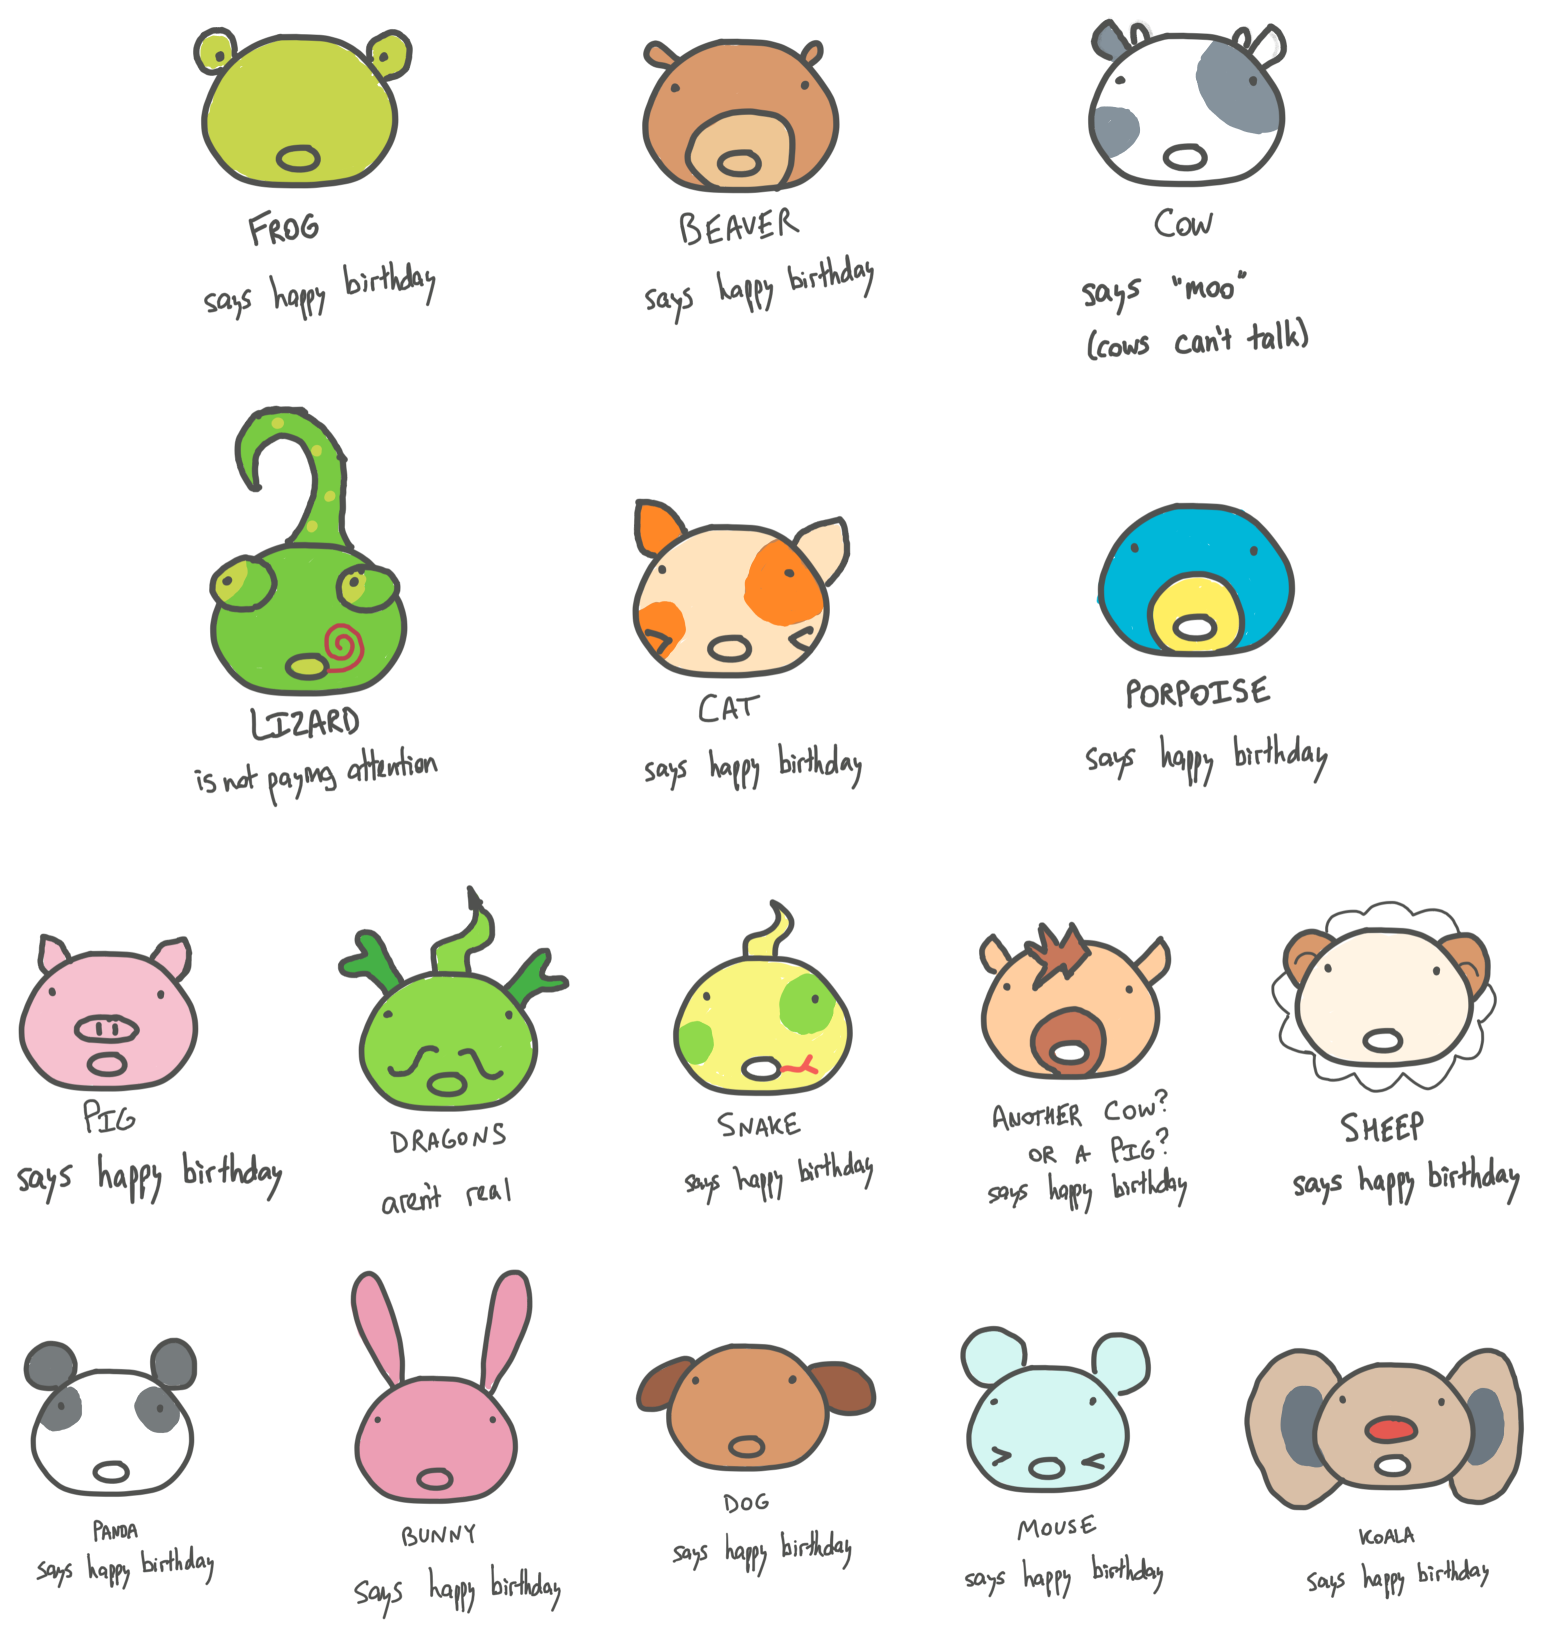 FROG
says happy birthday
BEAVER
says happy birthday
COW
says "moo"
(cows can't talk)
LIZARD
is not paying attention
CAT
says happy birthday
PORPOISE
says happy birthday
PIG
says happy birthday
DRAGONS
aren't real
SNAKE
says happy birthday
ANOTHER COW?
OR A PIG?
says happy birthday
SHEEP
says happy birthday
PANDA
says happy birthday
BUNNY
says happy birthday
DOG
says happy birthday
MOUSE
says happy birthday
KOALA
says happy birthday